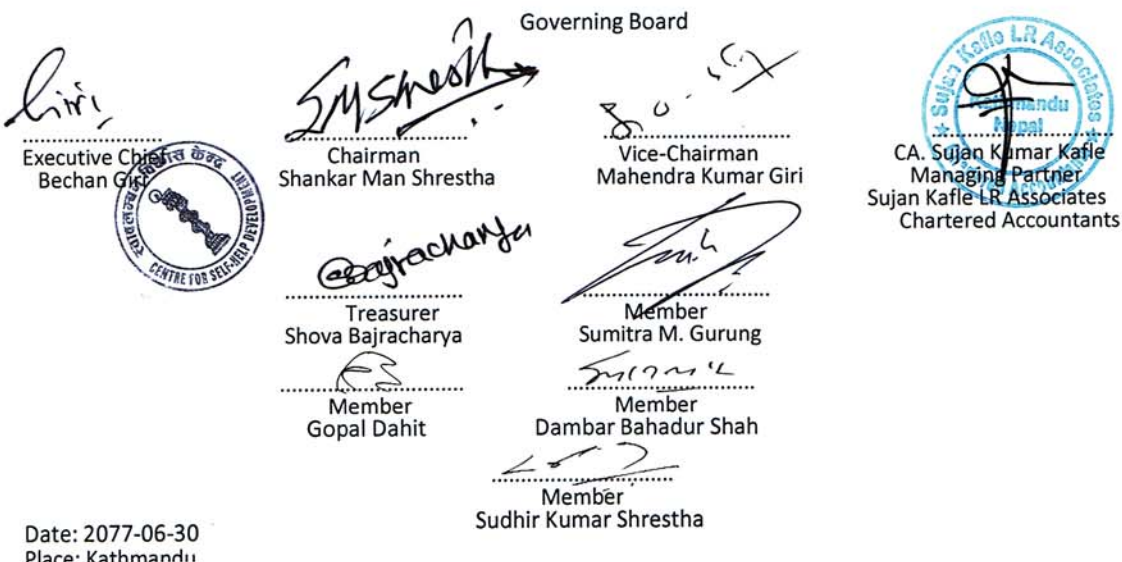 Governing Board
Executive Chief
Bechan Giri
स्वावलम्बन विकास केन्द्र
CENTRE FOR SELF-HELP DEVELOPMENT
Chairman
Shankar Man Shrestha
Vice-Chairman
Mahendra Kumar Giri
Sujan Kafle LR Associates
Kathmandu
Nepal
Chartered Accountants
CA. Sujan Kumar Kafle
Managing Partner
Sujan Kafle LR Associates
Chartered Accountants
Bajracharya
Treasurer
Shova Bajracharya
Member
Sumitra M. Gurung
Member
Gopal Dahit
Member
Dambar Bahadur Shah
Member
Sudhir Kumar Shrestha
Date: 2077-06-30
Place: Kathmandu